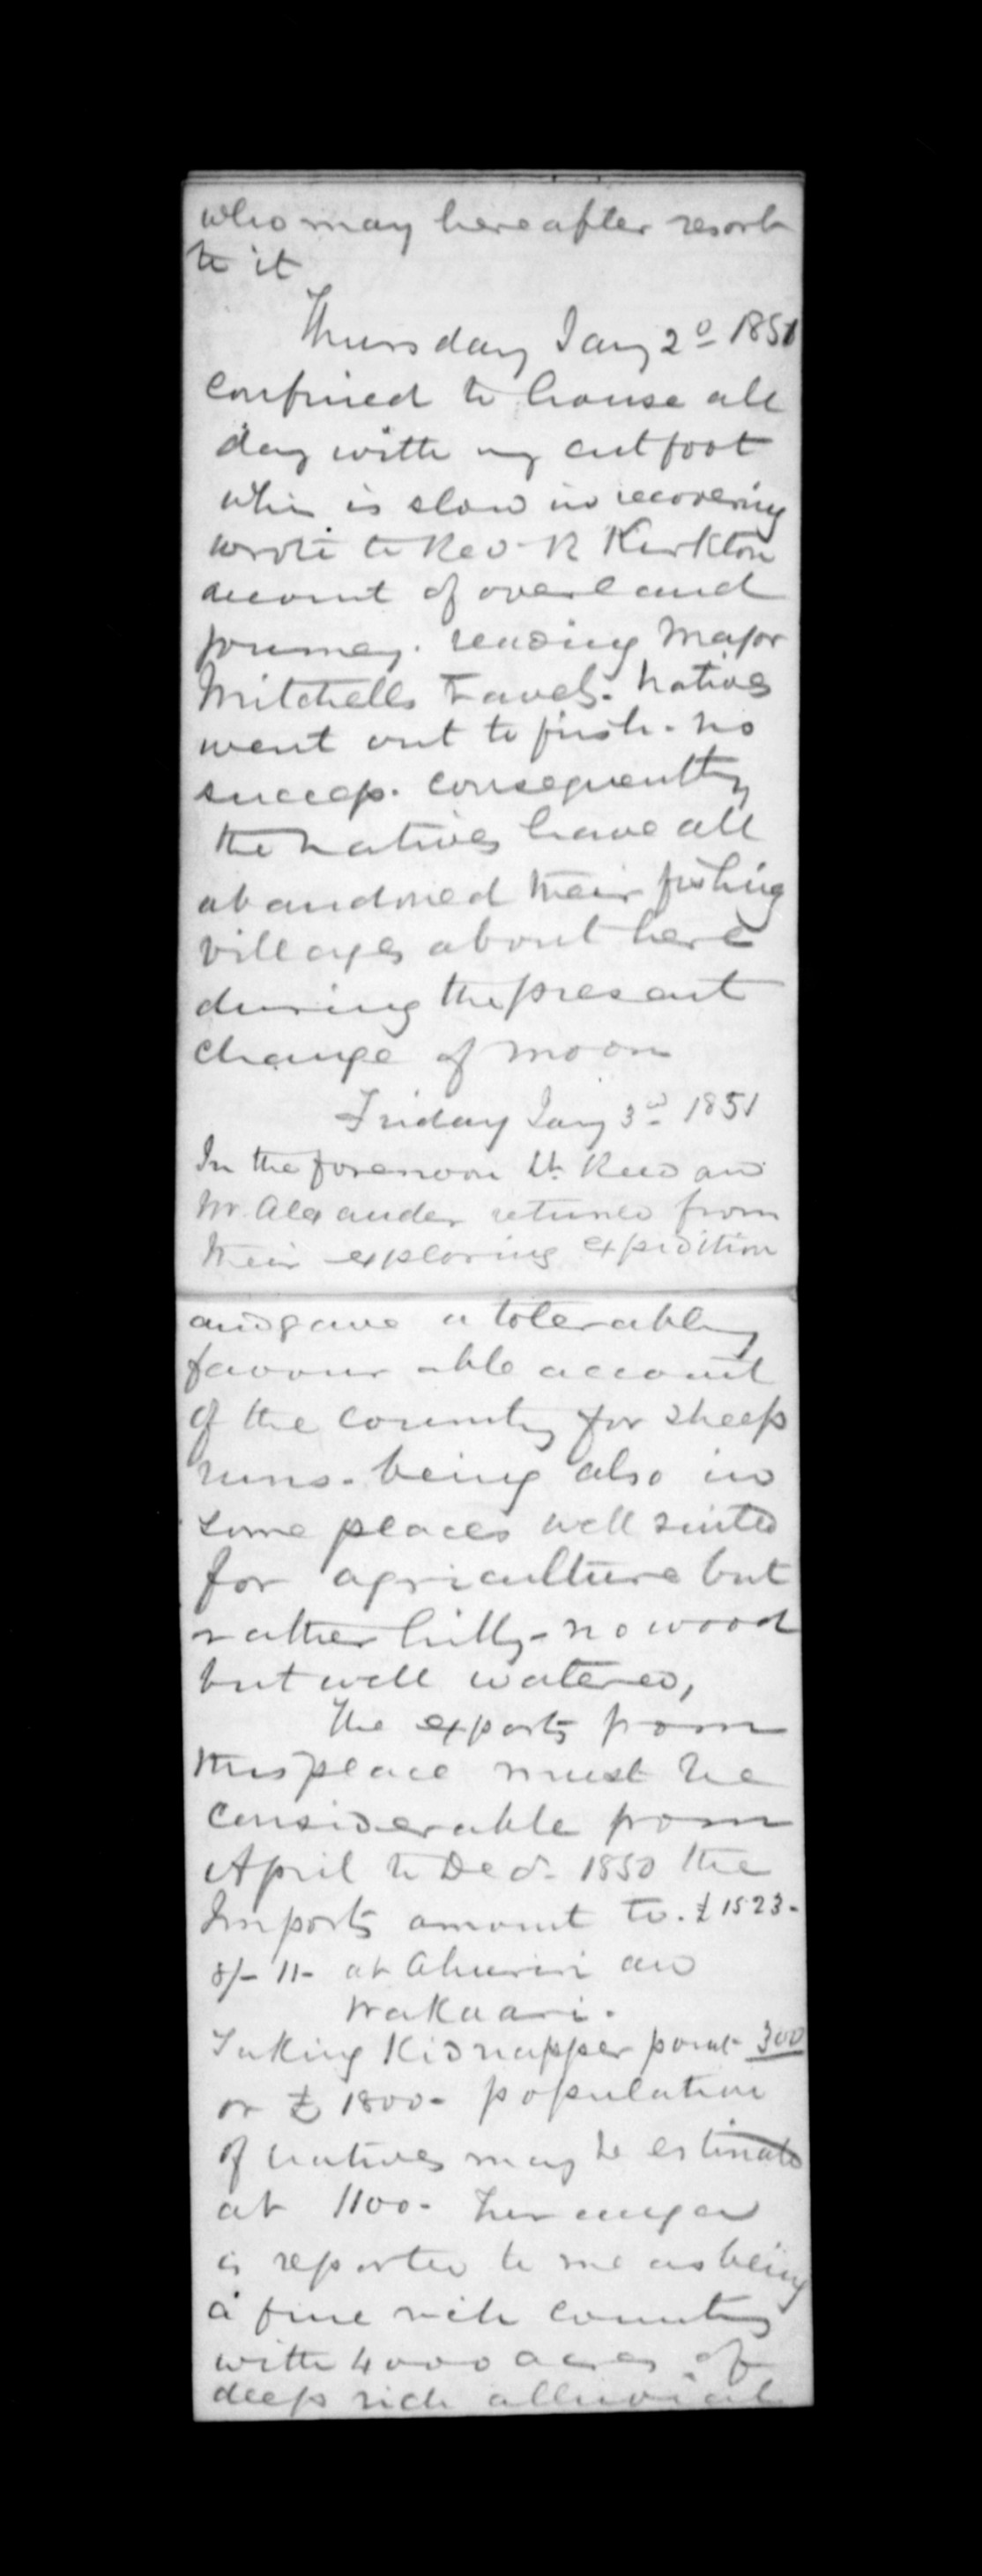 who may hereafter resort
to it
Thursday Jany 2d 1851
Confined to house all
day with my cut foot
whi is slow in recovering
wrote to Rev. R Kirkton
account of overland
journey. reading Major
Mitchells Travels. Natives
went out to fish. no
success. consequently
the natives have all
abandoned their fishing
villages about here
during the present
change of moon
Friday Jany 3d 1851
In the forenoon Lt. and
Mr. Alexander returned from
their exploring expedition
and gave a tolerably
favourable account
of the country for sheep
runs - being also in
some places well suited
for agriculture but
rather hilly - no wood
but well watered,
The exports from
this place must be
considerable from
April to Decr. 1850 the
Imports amount to. £1523-
8/- 11- at Ahuriri and
Wakaari.
Taking Kidnapper point 300
or £ 1800- population
of natives may be estimated
at 1100-
is reported to me as being
a fine rich country
with 4000 acres of
deep rich alluvial